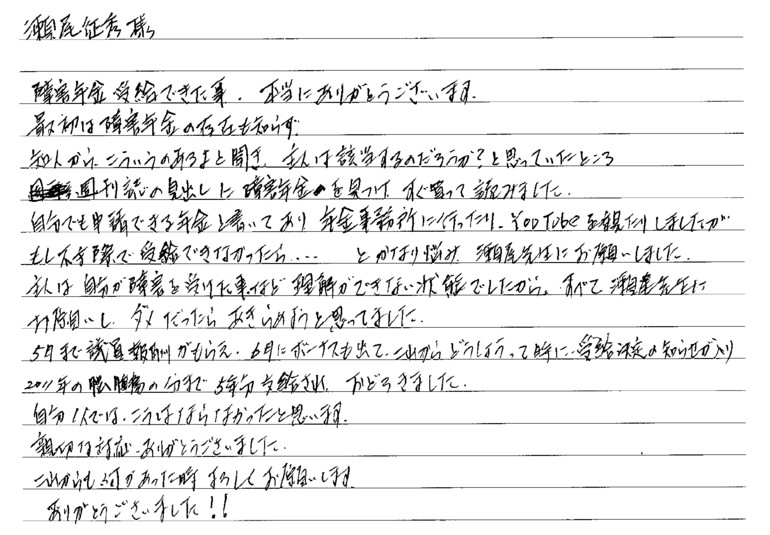 瀬尾征秀様
障害年金受給できた事、本当にありがとうございます。
最初は障害年金の存在も知らず
知人から、こういうのあるよと聞き、主人は該当するのだろうか?と思っていたところ
週刊誌の見出しに障害年金のを見つけ、すぐ買って読みました。
自分でも申請できる年金と書いてあり 年金事務所に行ったり、YouTubeを観たりしましたが
もし不手際で受給できなかったら.... とかなり悩み 瀬尾先生にお願いしました。
主人は自分が障害を受けた事など理解ができない状態でしたから、すべて瀬尾先生に
お願いし、ダメだったらあきらめようと思ってました。
5月まで議員報酬がもらえ、6月にボーナスも出て、これからどうしようって時に、受給決定の知らせが入り
2011年の脳腫瘍の分まで5年分支給され、おどろきました。
自分1人では、こうはならなかったと思います。
親切な対応、ありがとうございました。
これからも何かあった時よろしくお願いします。
ありがとうございました!!